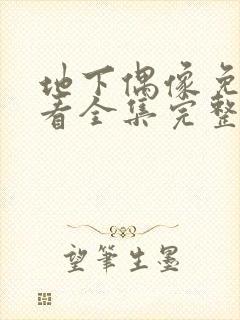 地下偶像免
看全集完整
望筆生墨